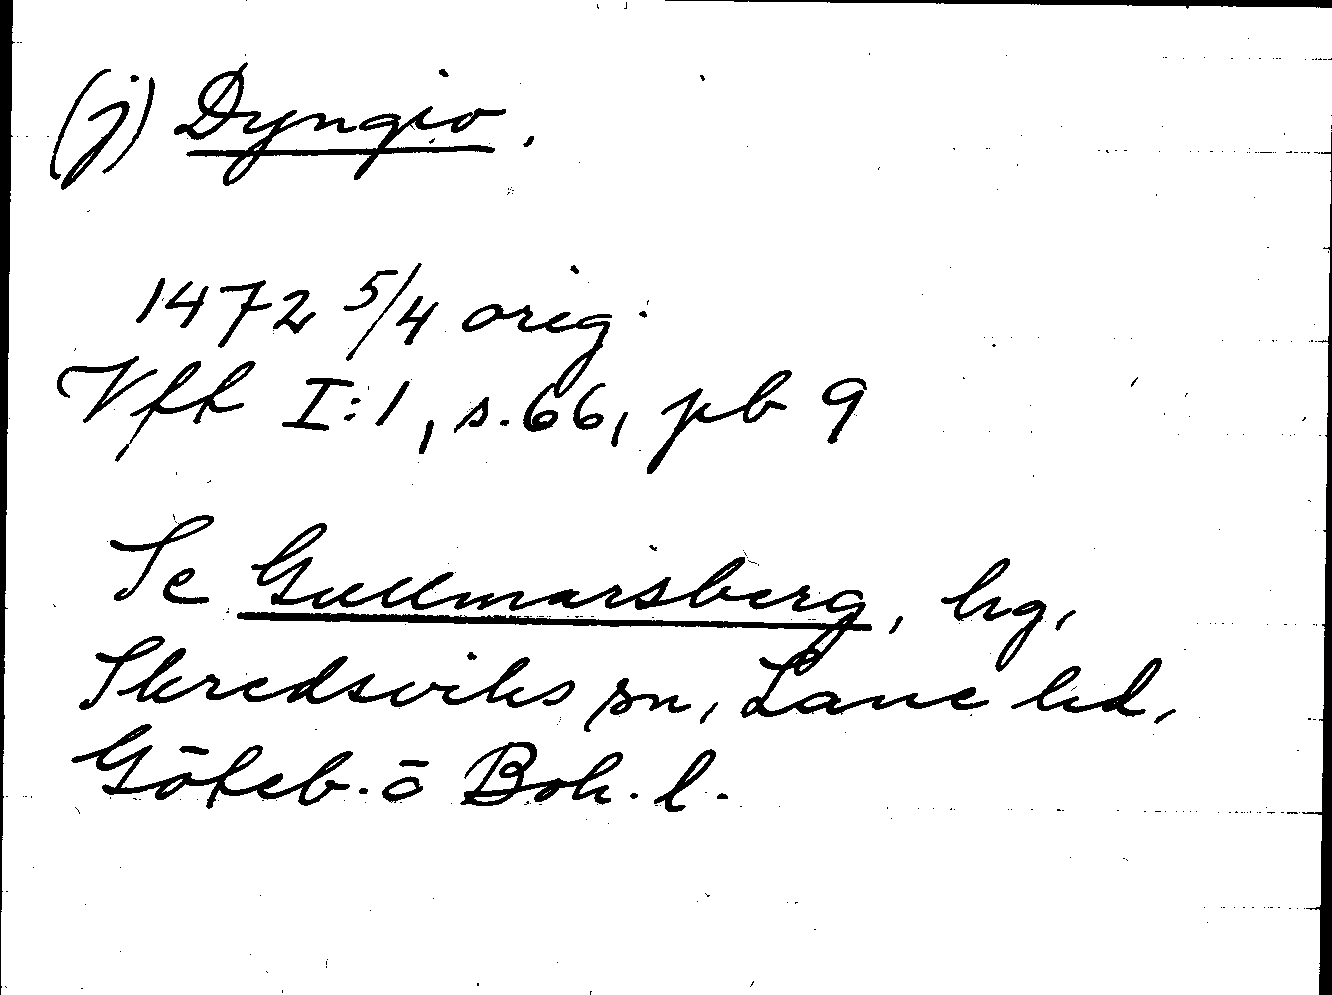 (j) Dyngio.
1472 5/4 orig.
Vft I:1, s. 66, pb 9
Se Gullmarsberg, hg,
Skredsviks sn, Lane hd,
Göteb. o Boh. l.